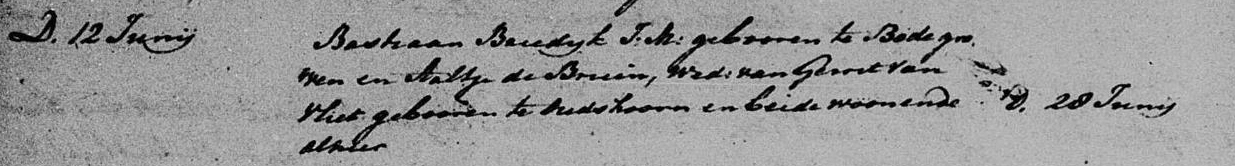 D. 12 Junij Bastiaan Baredyk J: M: gebooren te Bodegra
ven en Aaltje de Bruin, wed: van Gerrit van
Vliet gebooren te Oudshoorn en beide woonende D. 28 Junij
alhier